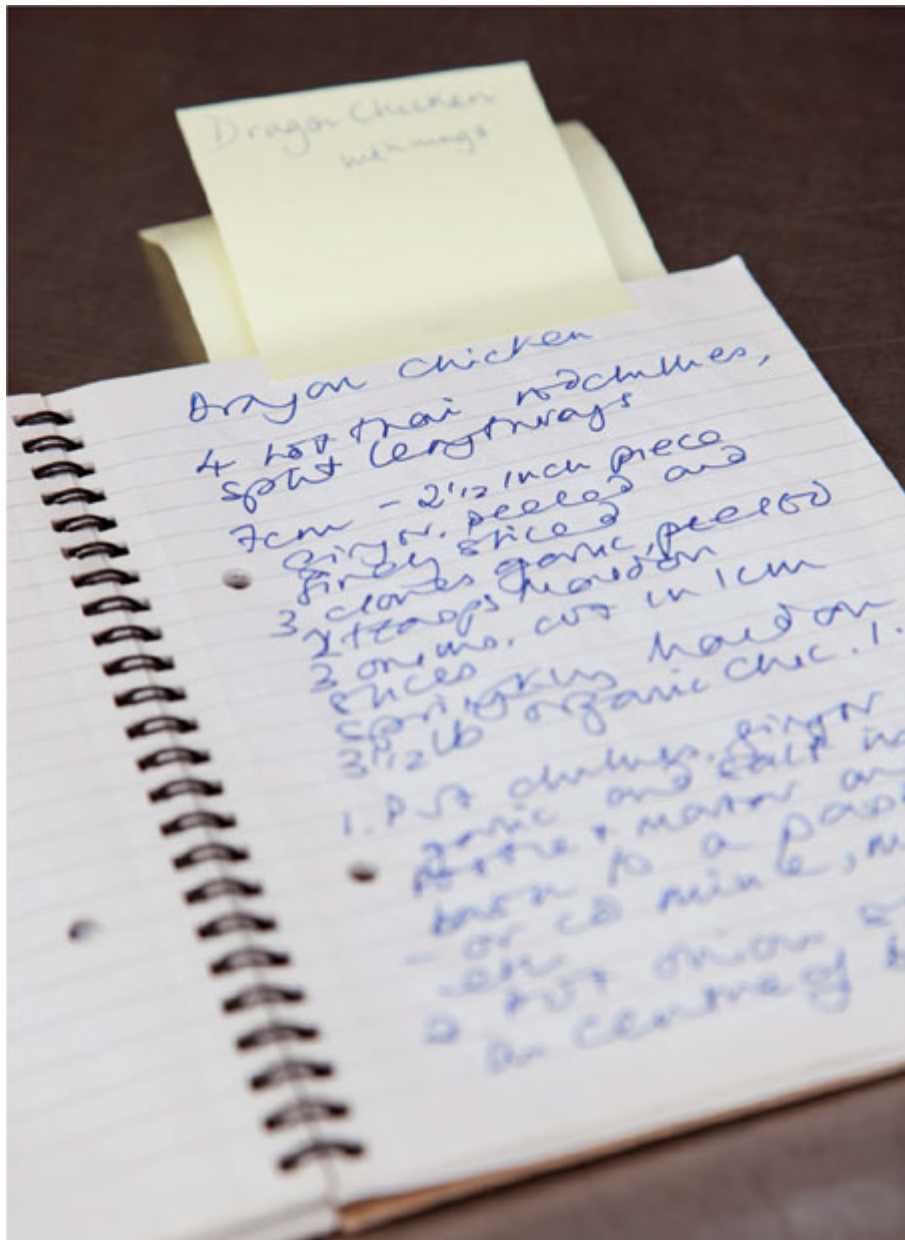 Dragon Chicken
Dragon Chicken
4 hot thai red chillies,
split lengthways
7cm - 2 1/2 inch piece
ginger, peeled and
finely sliced
3 cloves garlic, peeled
2 teasps maldon
2 onions. cut in 1cm
slices
sprinkling maldon
3 1/2 lb organic chic.
1. Put chillies, ginger
garlic and salt in
pestle + mortar an
to a pas
- or
2 Put onion
centre of